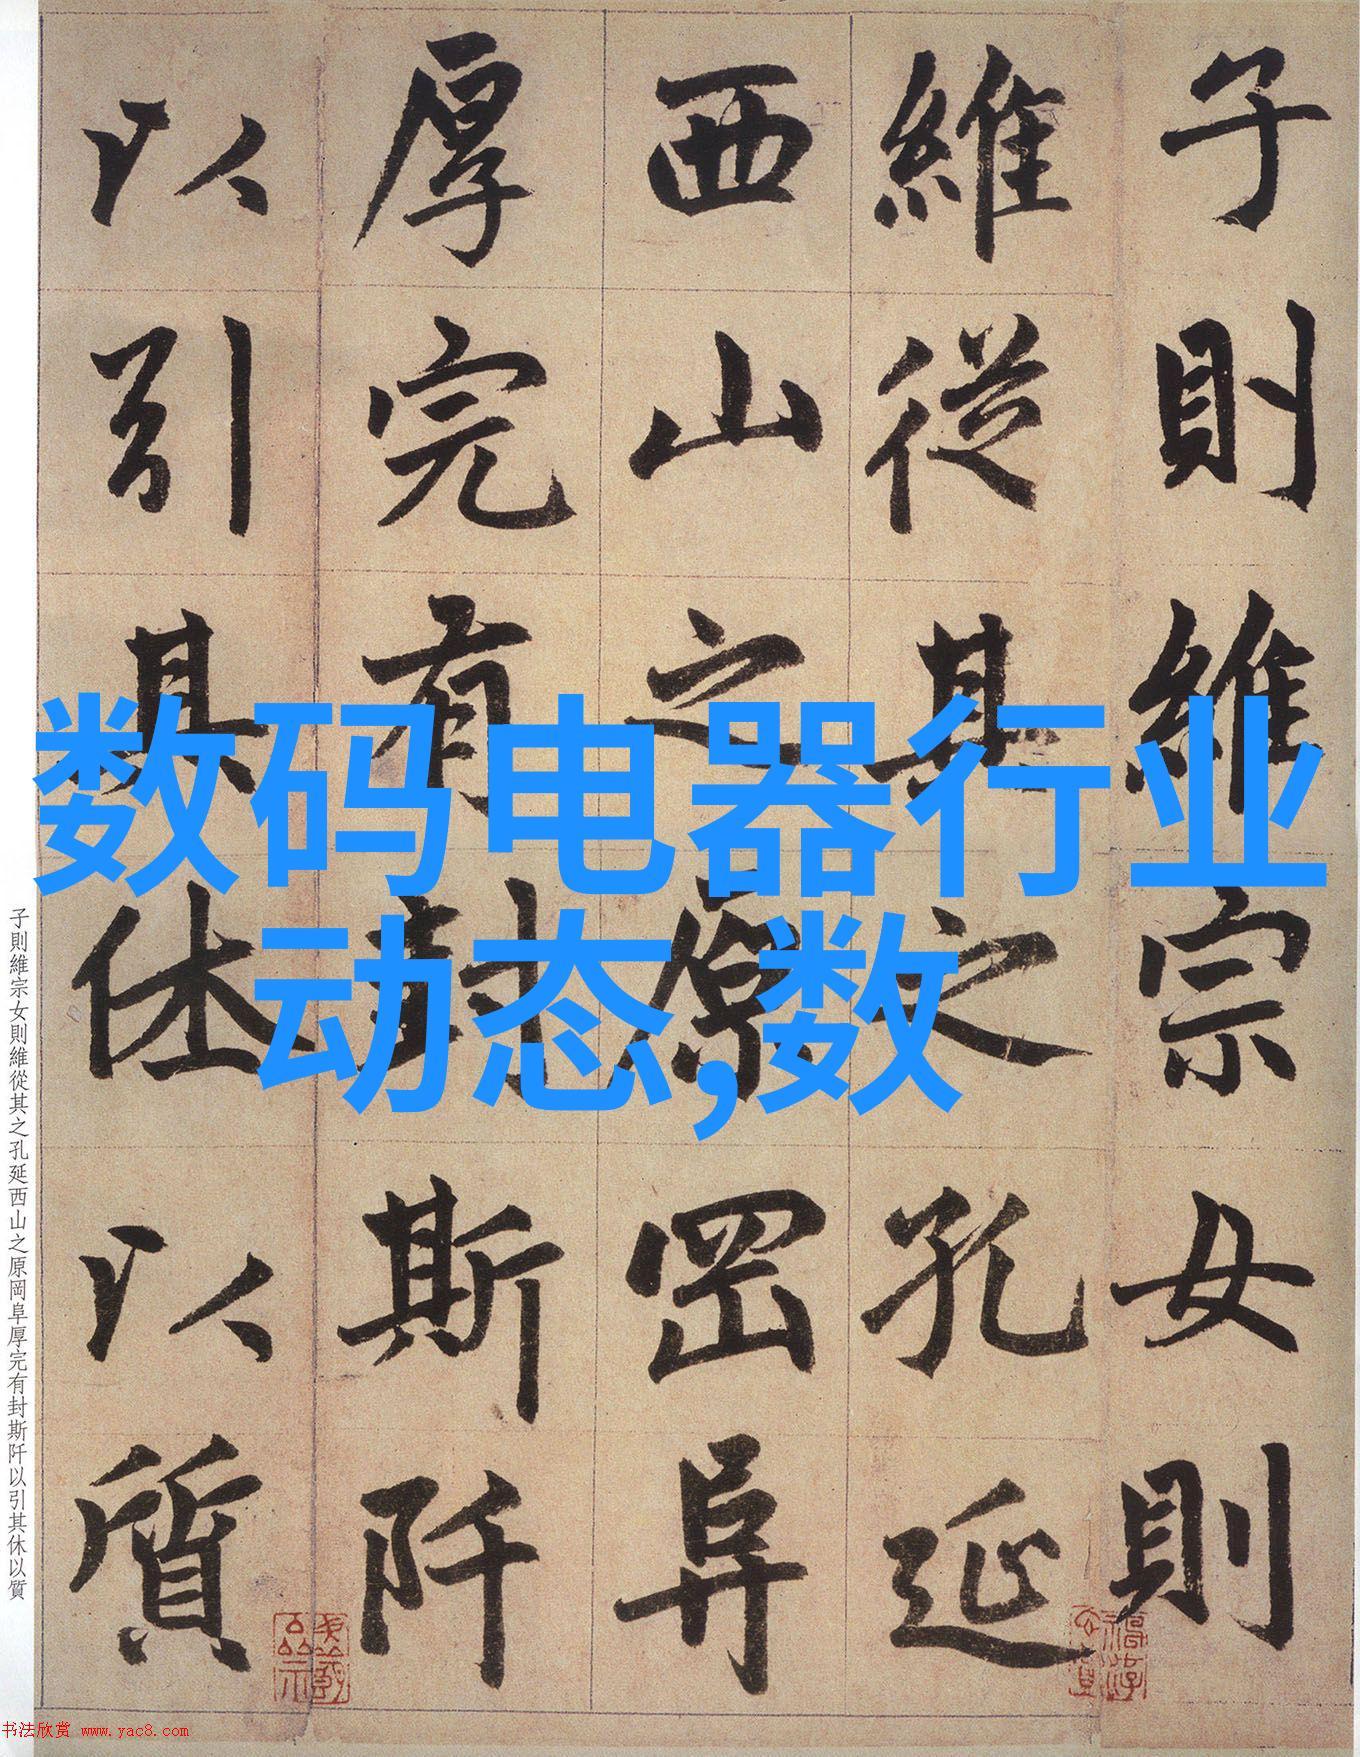 子則維宗女則
維從其之孔延
西山之原罔阜
厚完有封斯阡
以引其休以質
数码电器行业
动态,数
子則維宗女則維從其之孔延西山之原岡阜厚完有封斯阡以引其休以質
书法欣赏 www.yac8.com